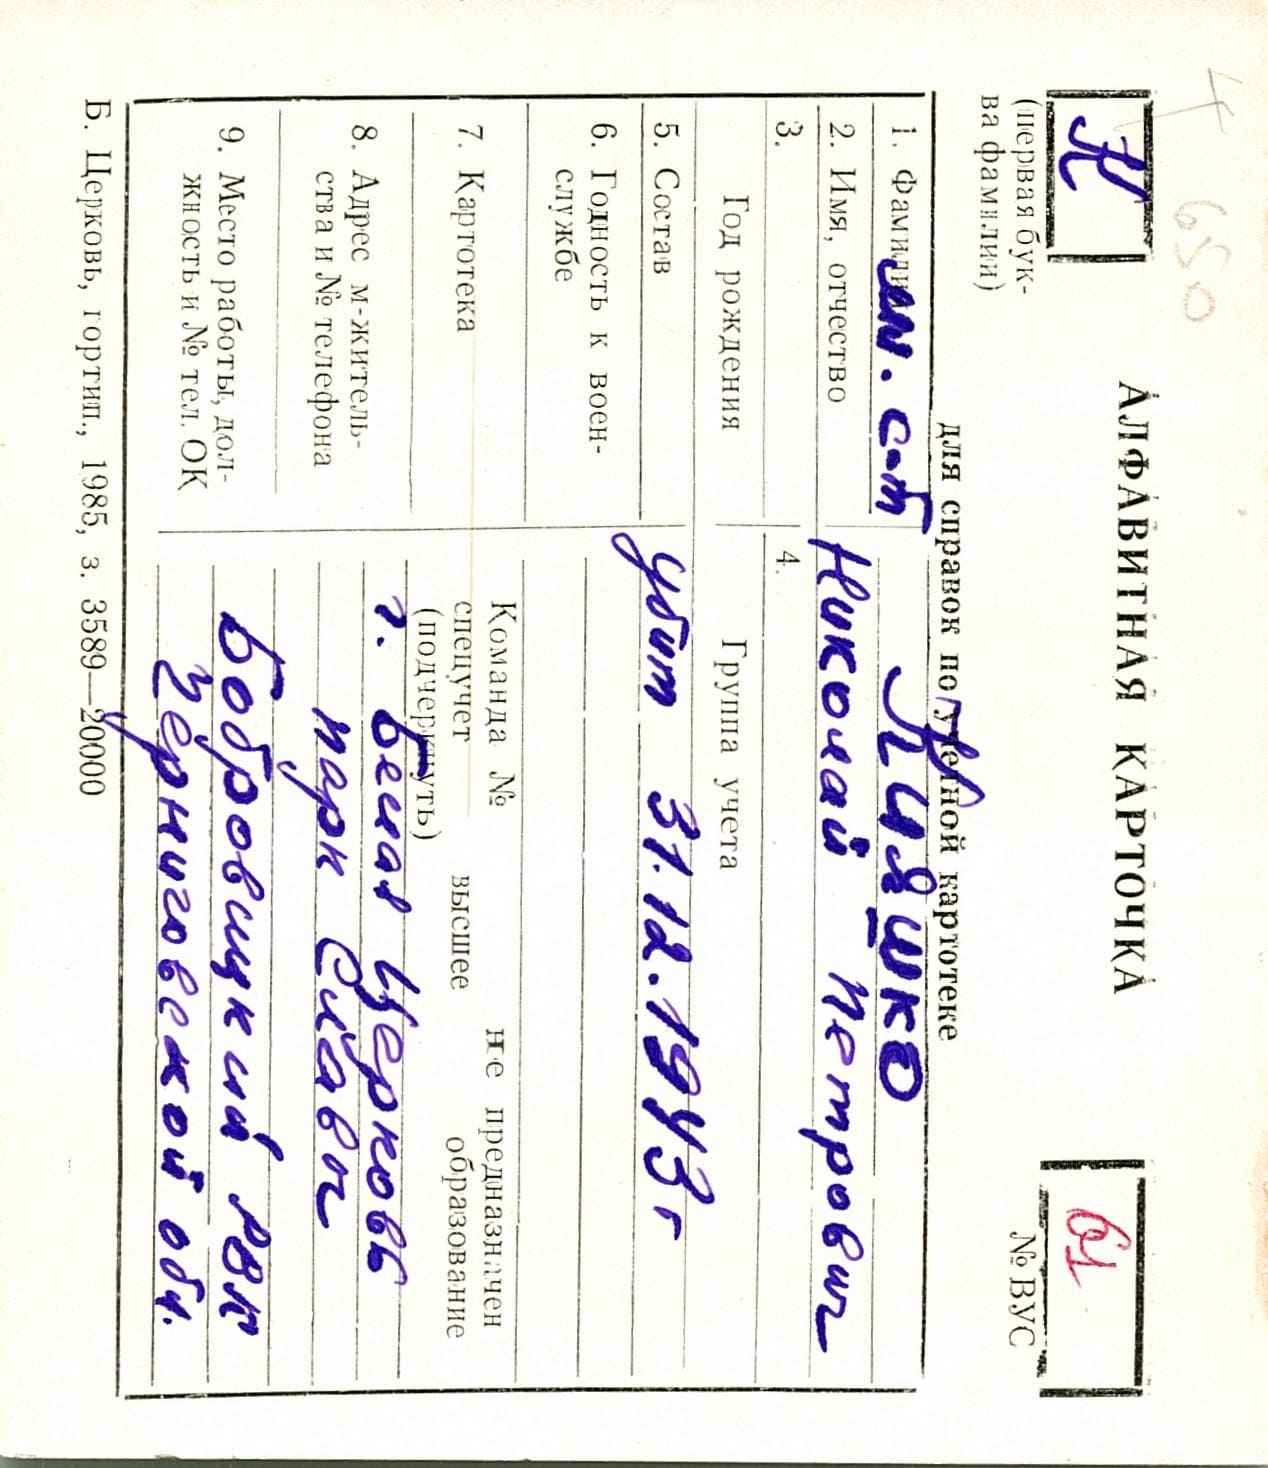 650
К
(первая бук-
ва фамилии)
АЛФАВИТНАЯ КАРТОЧКА
для справок по учетной картотеке
61
№ ВУС
1. Фамилия мл. с-т Кияшко
2. Имя, отчество Николай Петрович
3. Год рождения
4. Группа учета
5. Состав убит 31.12.1943 г
6. Годность к воен-
службе
7. Картотека
Команда № не предназначен
спецучет высшее образование
(подчеркнуть)
8. Адрес м-житель- г. Белая Церковь
ства и № телефона парк Славы
9. Место работы, дол- Бобровицкий РВК
жность и № тел. ОК Черниговской обл.
Б. Церковь, гортип., 1985, з. 3589—20000